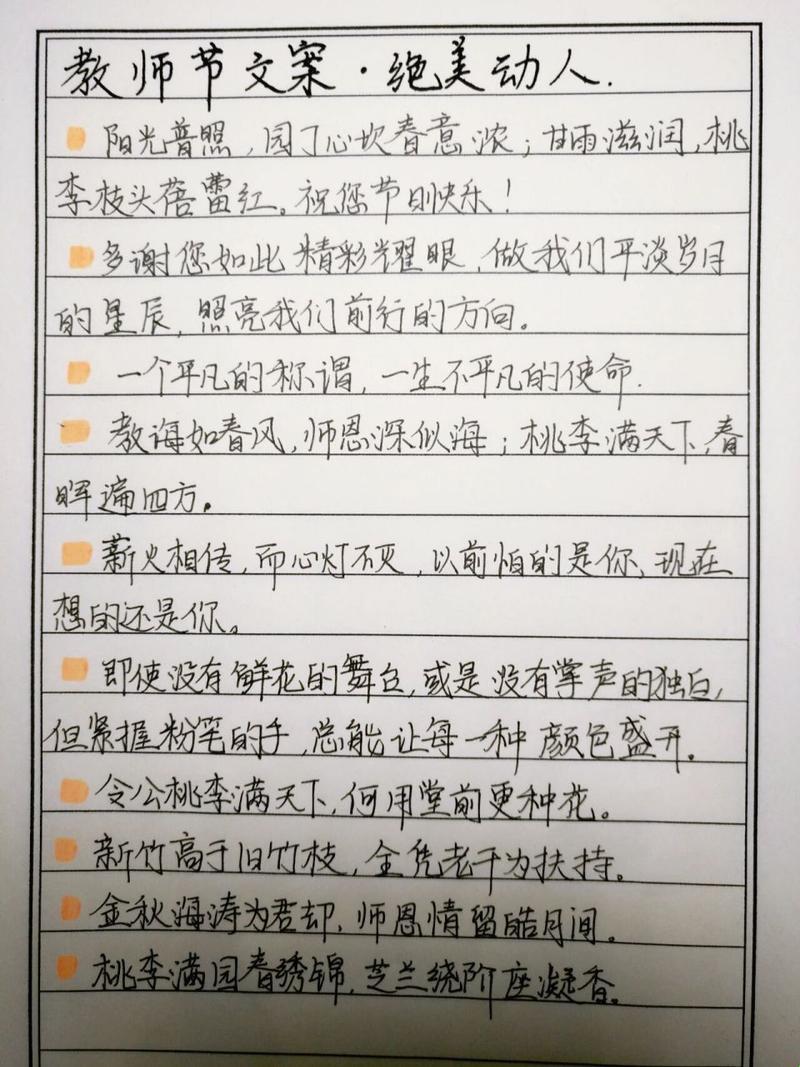 教师节文案·绝美动人.
阳光普照，园丁心坎春意浓；甘雨滋润，桃
李枝头蓓蕾红。祝您节日快乐！
多谢您如此精彩耀眼，做我们平淡岁月
的星辰，照亮我们前行的方向。
一个平凡的称谓，一生不平凡的使命.
教诲如春风，师恩深似海；桃李满天下，春
晖遍四方。
薪火相传，而心灯不灭，以前怕的是你，现在
想的还是你。
即使没有鲜花的舞台，或是没有掌声的独白，
但紧握粉笔的手，总能让每一种颜色盛开。
令公桃李满天下，何用堂前更种花。
新竹高于旧竹枝，全凭老干为扶持。
金秋海涛为君却，师恩情留皓月间。
桃李满园春绣锦，芝兰绕阶座凝香。